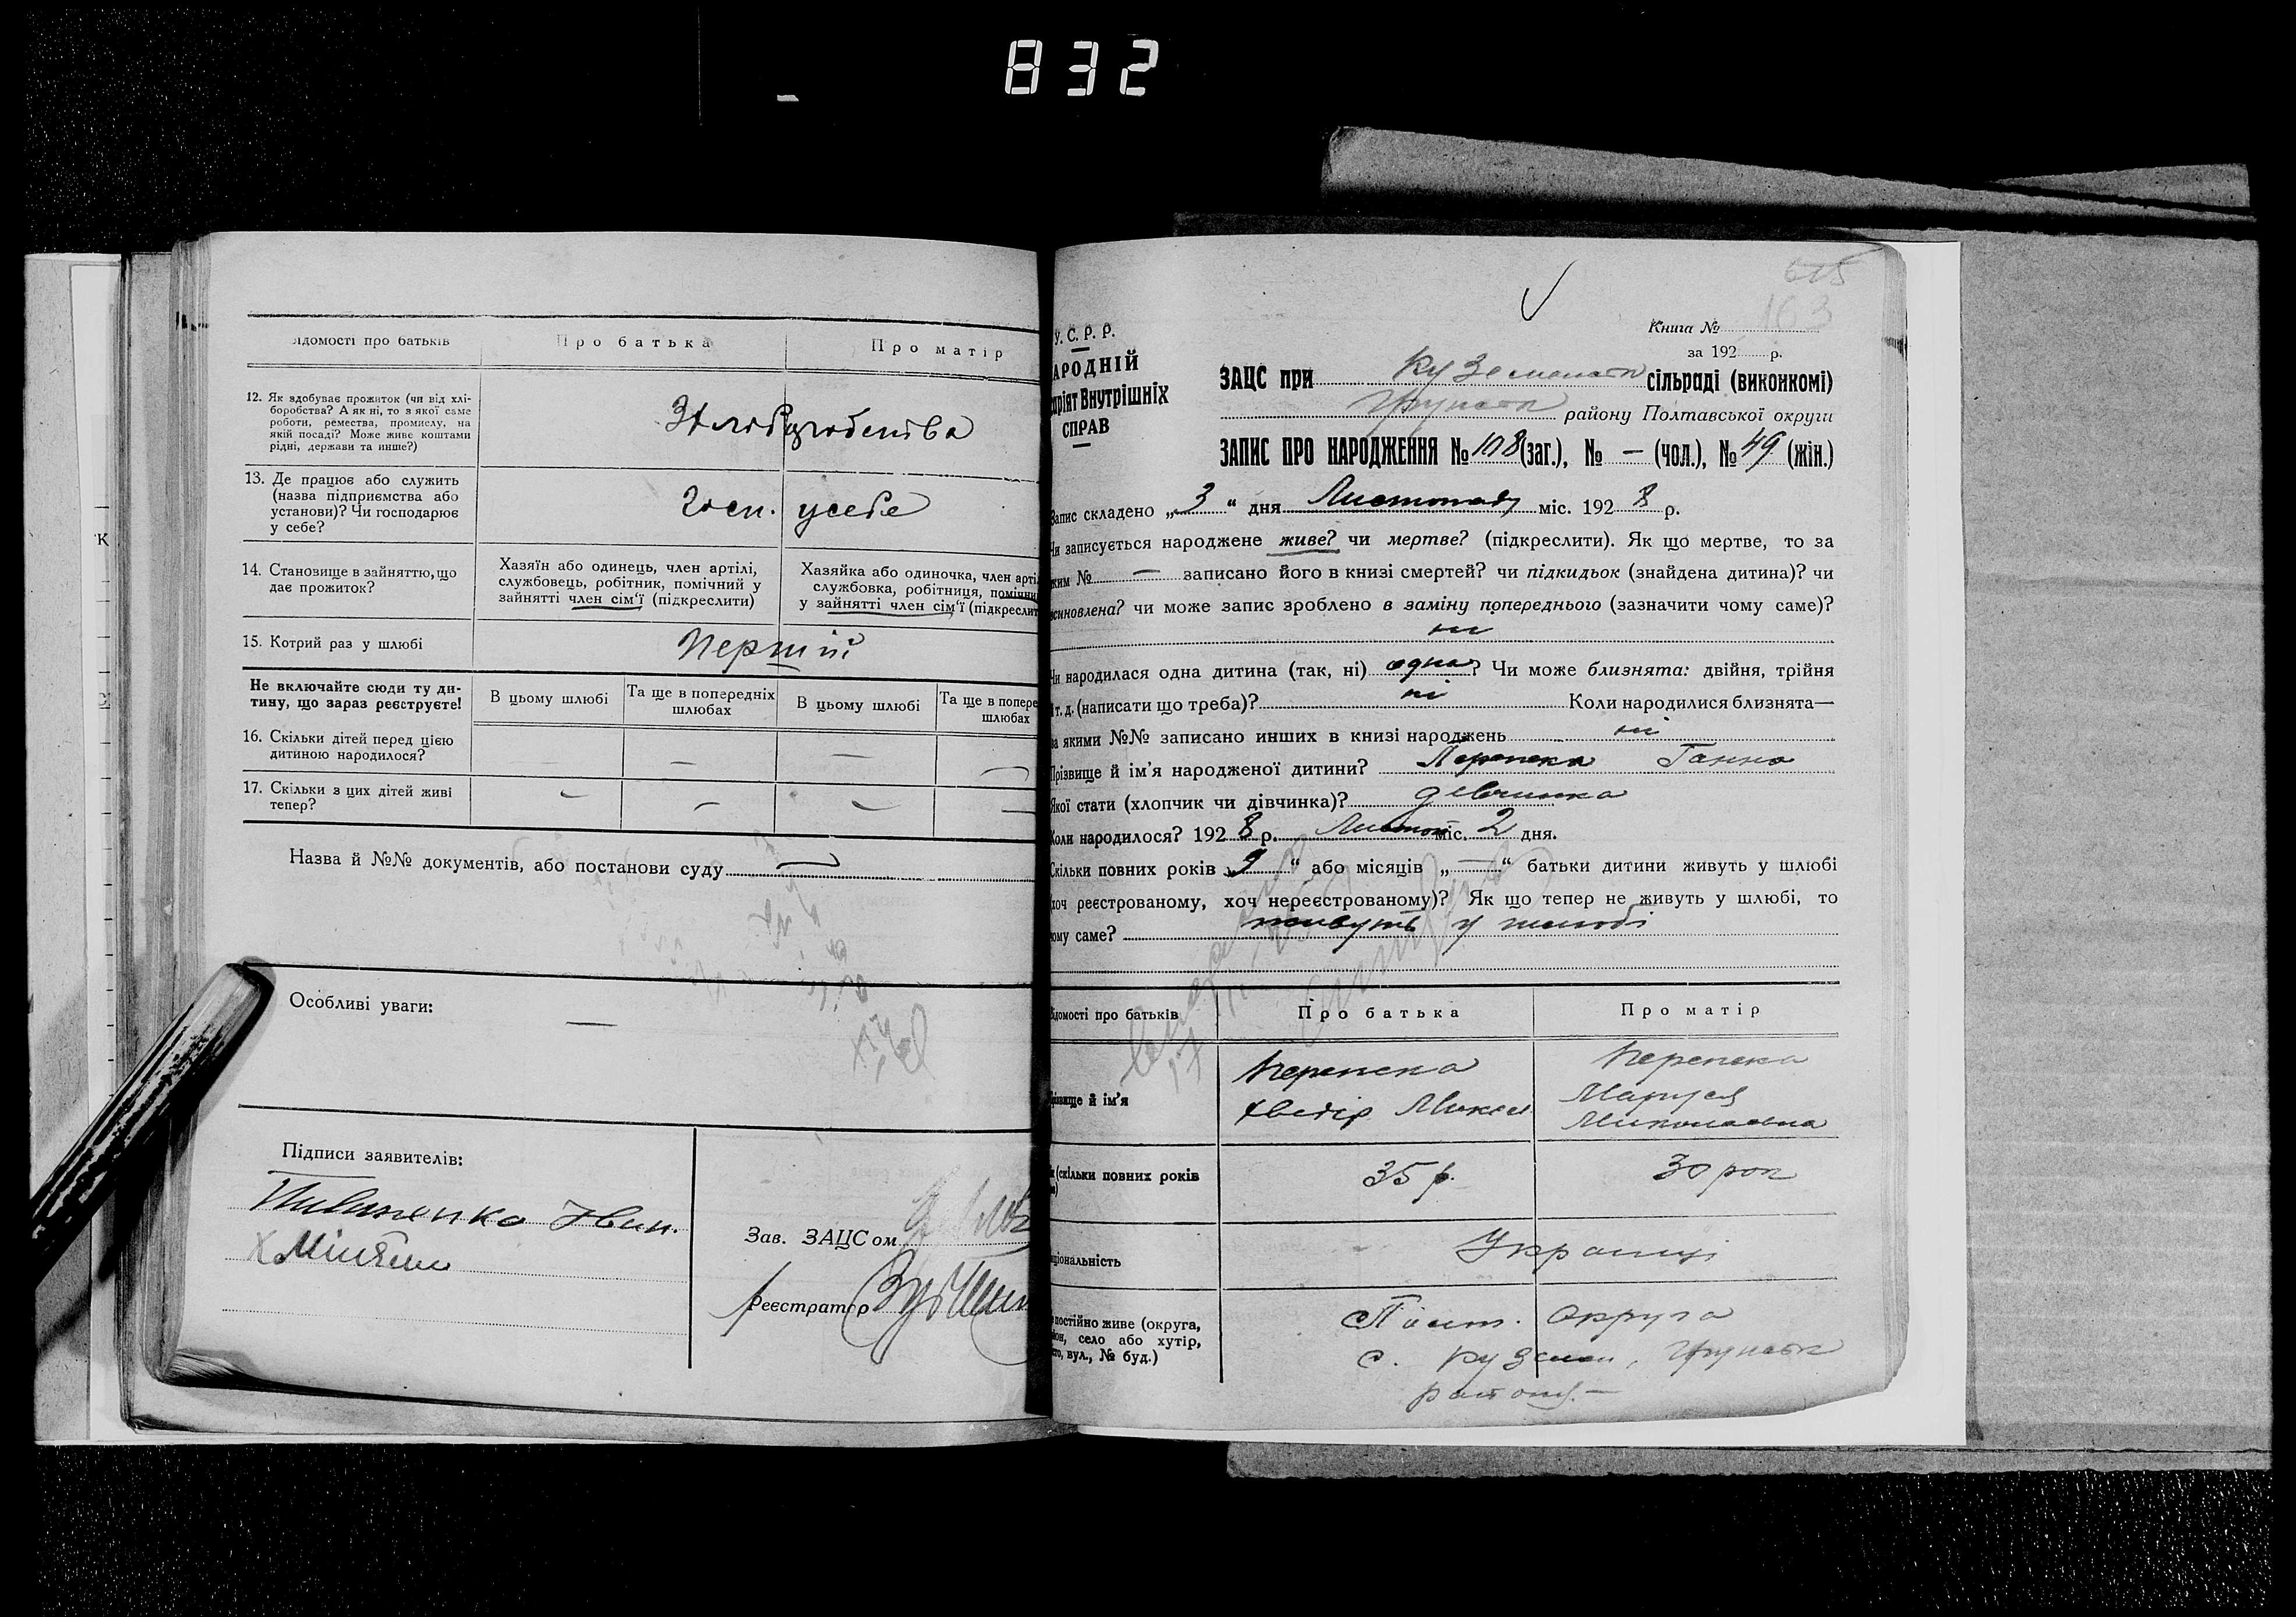 832
Відомості про батьків
Про батька
Про матір
12. Як здобуває прожиток (чи від хлі-
боробства? А як ні, то з якої саме
роботи, ремества, промислу, на
якій посаді? Може живе коштами
рідні, держави та инше?)
З хліборобства
13. Де працює або служить
(назва підприємства або
установи)? Чи господарює
у себе?
Госп. у себе
14. Становище в зайняттю, що
дає прожиток?
Хазяїн або одинець, член артілі,
службовець, робітник, помічний у
зайнятті член сім'ї (підкреслити)
Хазяйка або одиночка, член арті
службовка, робітниця, помічни
у зайнятті член сім'ї (підкреслит
15. Котрий раз у шлюбі
Перший
Не включайте сюди ту ди-
тину, що зараз реєструєте!
В цьому шлюбі
Та ще в попередніх
шлюбах
В цьому шлюбі
Та ще в попере
шлюбах
16. Скільки дітей перед цією
дитиною народилося?
— — — —
17. Скільки з цих дітей живі
тепер?
— — — —
Назва й №№ документів, або постанови суду —
Особливі уваги:
—
Підписи заявителів:
Іван.
Зав. ЗАЦСом
Реєстратор
615
163
У. С. Р. Р.
АРОДНІЙ
аріят Внутрішніх
СПРАВ
Книга №
за 192 р.
ЗАЦС при сільраді (виконкомі)
району Полтавської округи
ЗАПИС ПРО НАРОДЖЕННЯ № 108 (заг.), № — (чол.), № 49 (жін.)
Запис складено „3“ дня Листопаду міс. 1928 р.
Чи записується народжене живе? чи мертве? (підкреслити). Як що мертве, то за
яким № — записано його в книзі смертей? чи підкидьок (знайдена дитина)? чи
усиновлена? чи може запис зроблено в заміну попереднього (зазначити чому саме)?
ні
Чи народилася одна дитина (так, ні) одна? Чи може близнята: двійня, трійня
і т. д. (написати що треба)? ні Коли народилися близнята—
за якими №№ записано инших в книзі народжень ні
Прізвище й ім'я народженої дитини? Перепека Ганна
Якої стати (хлопчик чи дівчинка)? дівчинка
Коли народилося? 1928 р. Листоп міс. 2 дня.
Скільки повних років „9“ або місяців „—“ батьки дитини живуть у шлюбі
хоч реєстрованому, хоч нереєстрованому)? Як що тепер не живуть у шлюбі, то
чому саме? живуть у шлюбі
Відомості про батьків
Про батька
Про матір
Прізвище й ім'я
Перепека
Хведір Микол
Перепека
Маруся
Миколаєвна
(скільки повних років
35 р.
30 рок
аціональність
Українці
постійно живе (округа,
йон, село або хутір,
сто, вул., № буд.)
Полт. округа
с. Кузємен,
району.—